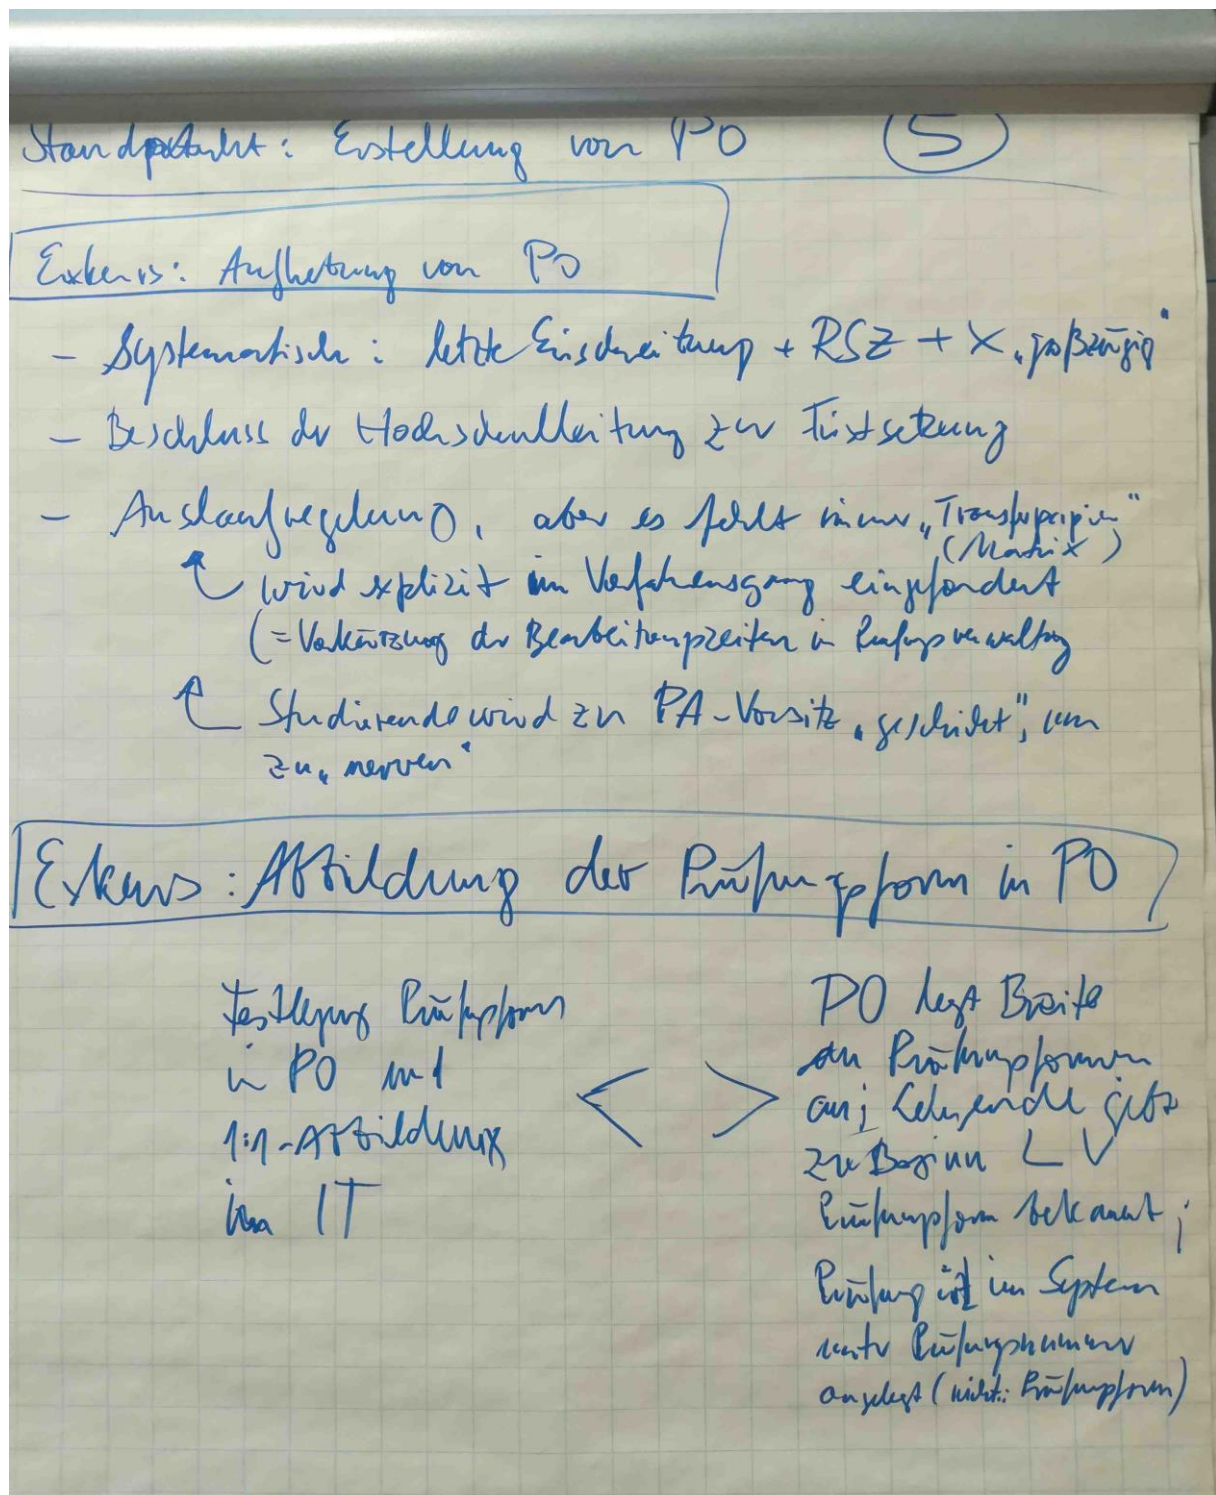 Standpunkt: Erstellung von PO 5
Exkurs: Aufhebung von PO
- Systematisch: letzte Einschreibung + RSZ + X „großzügig"
- Beschluss der Hochschulleitung zur Fristsetzung
- Auslaufregelung, aber es fehlt immer
(Matrix)
wird explizit im Verfahrensgang eingefordert
(= Verkürzung der Bearbeitungszeiten in Prüfungsverwaltung
Studierende wird zu PA-Vorsitz „geschickt", um
zu „nerven"
Exkurs: Abbildung der Prüfungsform in PO
Festlegung Prüfungsform
in PO und
1:1-Abbildung
im IT
< >
PO legt Breite
an Prüfungsformen
an; Lehrende gibt
zu Beginn LV
Prüfungsform bekannt;
Prüfung ist im System
unter Prüfungsnummer
angelegt (nicht: Prüfungsform)